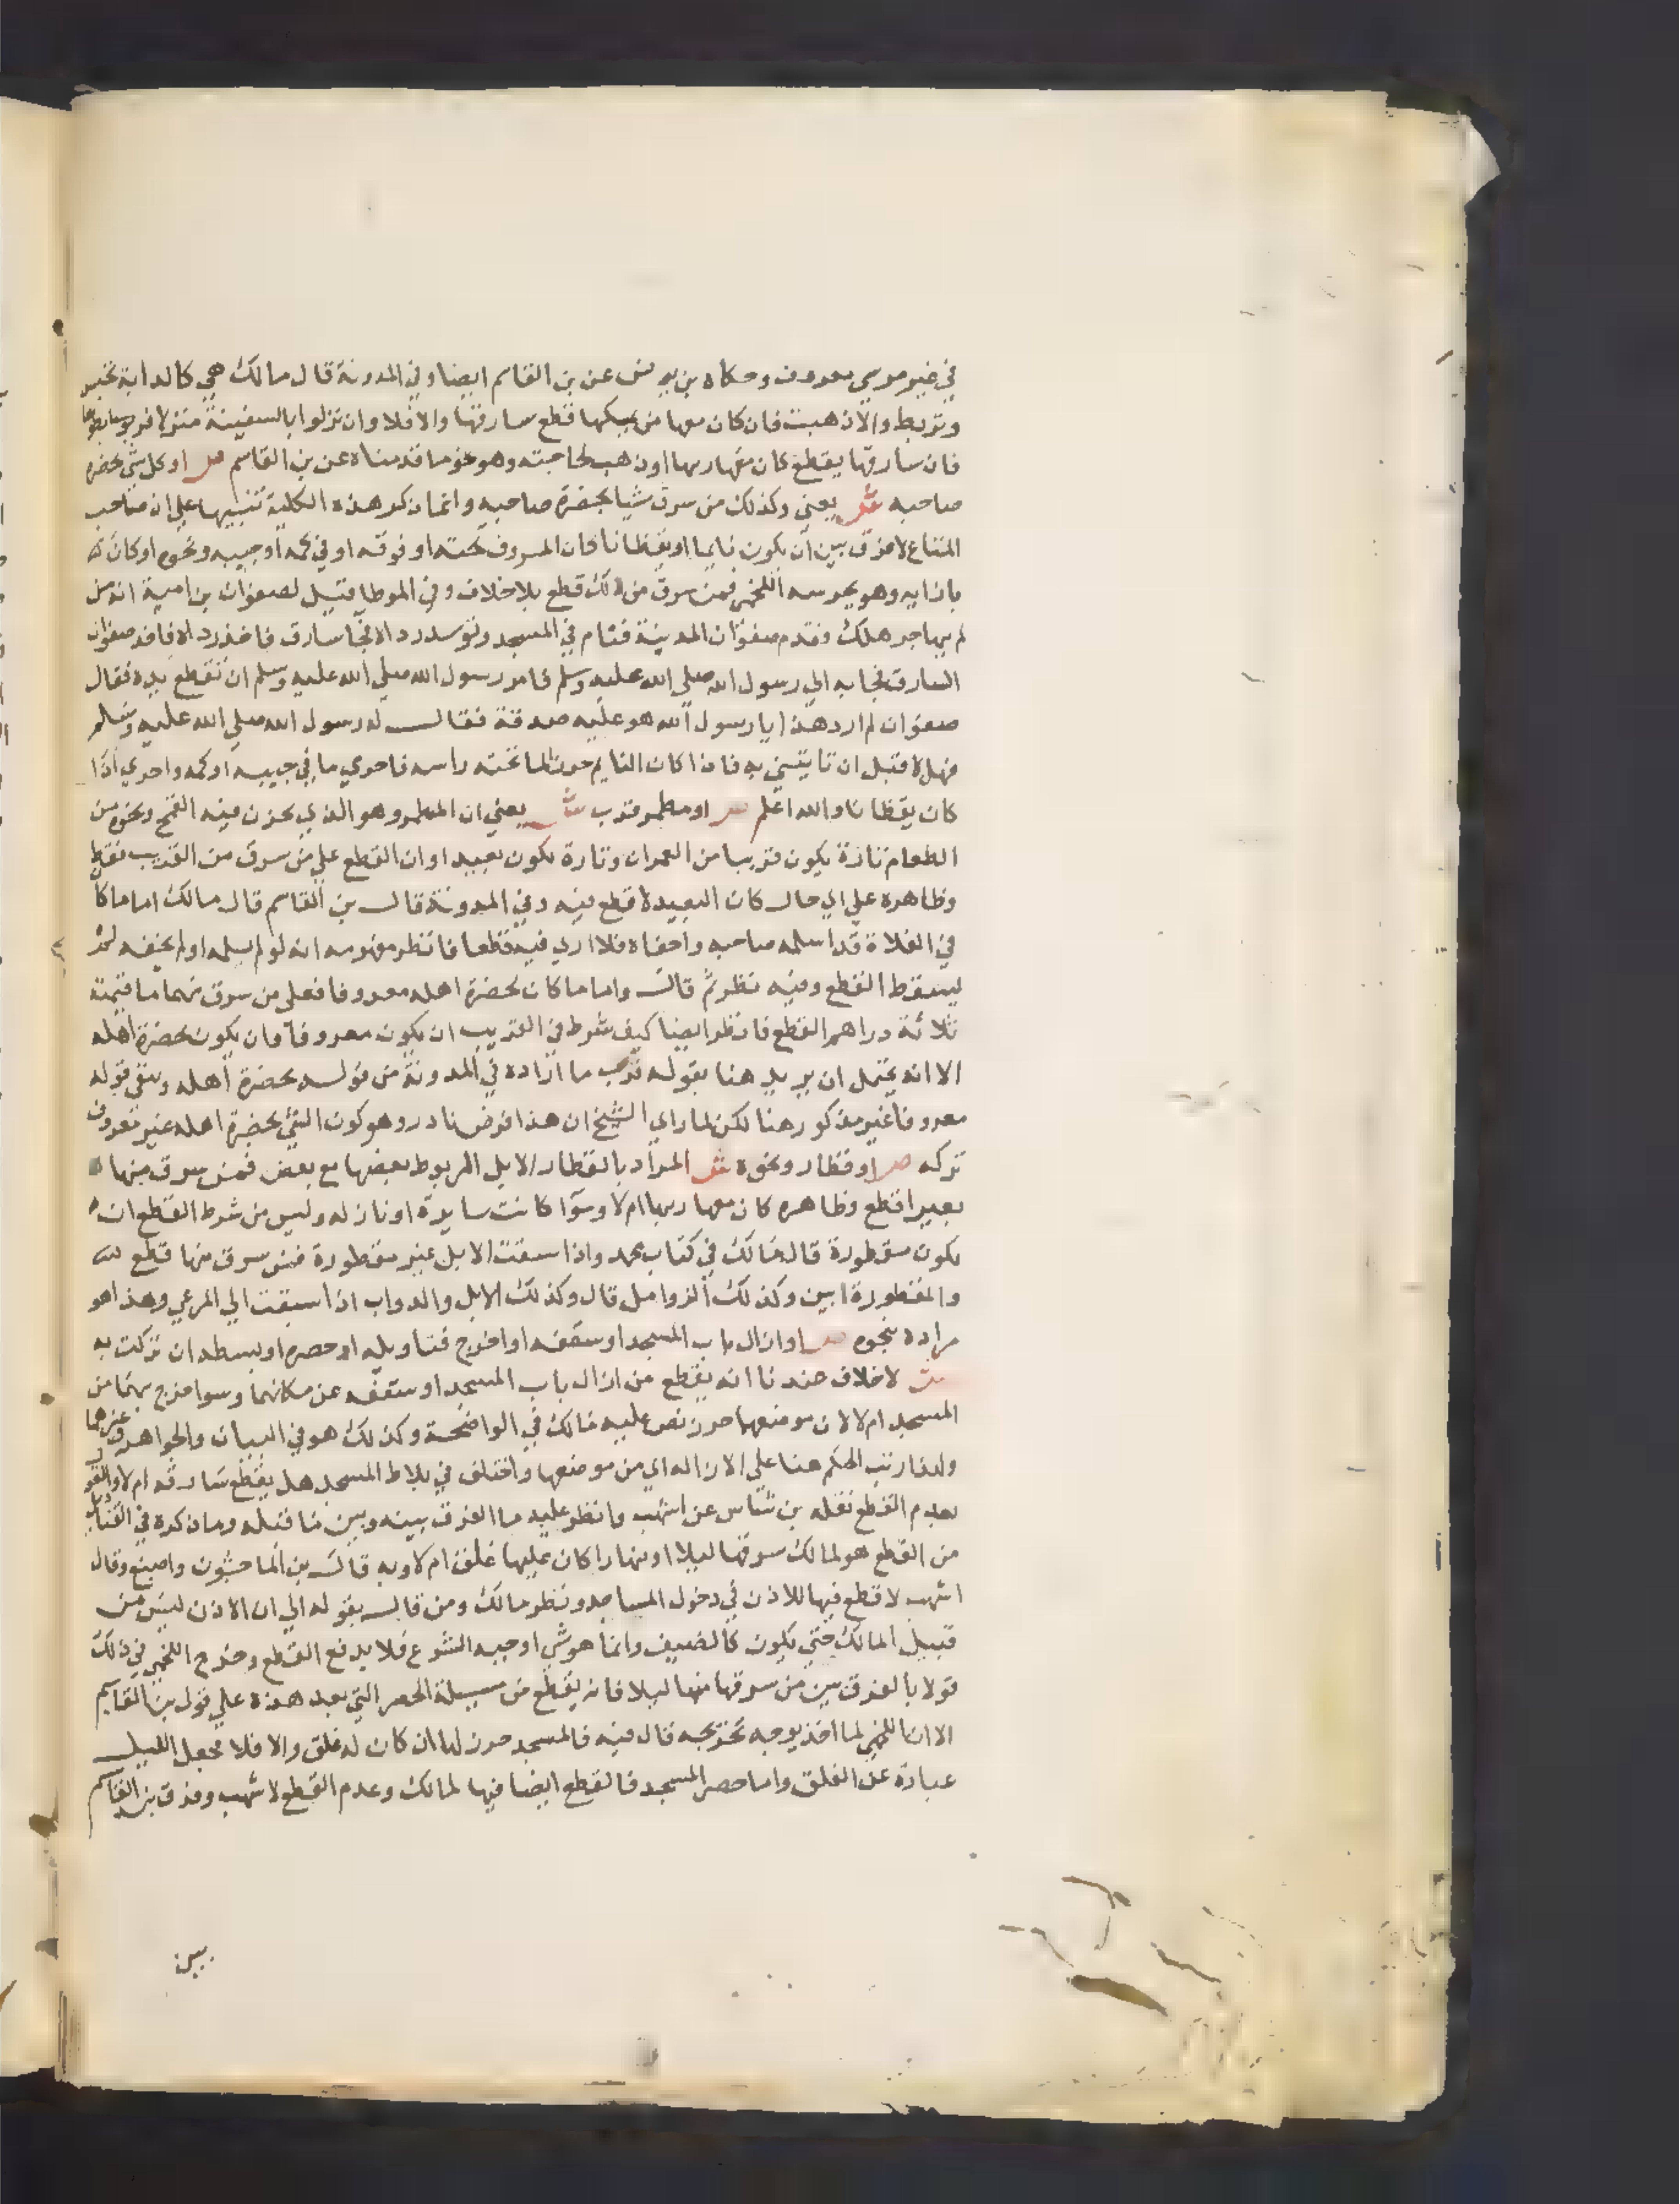 في غير مرسي معروف وحكاه بن يونس عن بن القاسم ايضا وفي المدونة قال مالك هي كالدابة تحبس
وتربط والا ذهبت فان كان معها من يمسكها قطع سارقها والا فلا وان نزلوا بالسفينة منزلا فربطوها
فان سارقها يقطع كان معها ربها او ذهب لحاجته وهو نحو ما قدمناه عن بن القاسم ص او كل شي بحضرة
صاحبه ش يعني وكذلك من سرق شيا بحضرة صاحبه وانما ذكر هذه الكلية تنبيها علي ان صاحب
المتاع لا فرق بين ان يكون نايما او يقظانا كان المسروق تحته او فوقه او في كمه او جيبه ونحوه او كان
بازايه وهو يحرسه اللخمي فمن سرق من ذلك قطع بلا خلاف وفي الموطا قيل لصفوان بن امية انه من
لم يهاجر هلك فقدم صفوان المدينة فنام في المسجد وتوسد رداه فجا سارق فاخذ رداه فاخذ صفوان
السارق فجا به الي رسول الله صلي الله عليه وسلم فامر رسول الله صلي الله عليه وسلم ان تقطع يده فقال
صفوان لم ارد هذا يا رسول الله هو عليه صدقة فقال له رسول الله صلي الله عليه وسلم
فهلا قبل ان تاتيني به فاذا كان النايم حرزا لما تحته راسه فاحري ما في جيبه او كمه واحري اذا
كان يقظانا والله اعلم ص او مطمر قرب ش يعني ان المطمر وهو الذي يخزن فيه القمح ونحوه من
الطعام تارة يكون قريبا من العمران وتارة يكون بعيدا وان القطع علي من سرق من القريب فقط
وظاهره علي اي حال كان البعيد لا قطع فيه وفي المدونة قال بن القاسم قال مالك اما ما كان
في الفلاة قد اسلمه صاحبه واخفاه فلا اري فيه قطعا فانظر مفهومه انه لو لم يسلمه او لم يخفه لم
يسقط القطع وفيه نظر ثم قال واما ما كان بحضرة اهله معروفا فعلي من سرق منهما ما قيمته
ثلاثة دراهم القطع فانظر ايضا كيف شرط في القريب ان يكون معروفا وان يكون بحضرة اهله
الا انه يحتمل ان يريد هنا بقوله قرب ما اراده في المدونة من قوله بحضرة اهله وبقي قوله
معروفا غير مذكور هنا لكن لما راي الشيخ ان هذا فرض نادر وهو كون الشي بحضرة اهله غير معروف
تركه ص او قطار ونحوه ش المراد بالقطار الابل المربوط بعضها مع بعض فمن سرق منها
بعيرا قطع وظاهره كان معها ربها ام لا وسوا كانت سايرة او نازله وليس من شرط القطع ان
يكون مقطورة قال مالك في كتاب محمد واذا سيقت الابل غير مقطورة فمن سرق منها قطع
والمقطورة ابين وكذلك الزوامل قال وكذلك الابل والدواب اذا سيقت الي المرعي وهذا هو
مراده بنحوه ص او ازال باب المسجد او سقفه او اخرج قناديله او حصره او بسطه ان تركت به
ش لا خلاف عندنا انه يقطع من ازال باب المسجد او سقفه عن مكانهما وسوا خرج بهما من
المسجد ام لا لان موضعهما حرز نص عليه مالك في الواضحة وكذلك هو في البيان والجواهر وغيرهما
ولهذا رتب الحكم هنا علي الازاله اي من موضعها واختلف في بلاط المسجد هل يقطع سارقه ام لا والقول
بعدم القطع نقله بن شاس عن اشهب وانظر عليه ما الفرق بينه وبين ما قبله وما ذكره في القناديل
من القطع هو لمالك سرقها ليلا او نهارا كان عليها غلق ام لا وبه قال بن الماجشون واصبغ وقال
اشهب لا قطع فيها للاذن في دخول المساجد ونظر مالك ومن قال بقوله الي ان الاذن ليس من
قبيل المالك حتي يكون كالضيف وانما هو شي اوجبه الشرع فلا يدفع القطع وخرج اللخمي في ذلك
قولا بالفرق بين من سرقها منها ليلا فانه يقطع من مسيلة الحصر التي بعد هذه علي قول بن القاسم
الا ان اللخمي لما اخذ يوجه تخريجه قال فيه فالمسجد حرز لها ان كان له غلق والا فلا فجعل الليل
عبارة عن الغلق واما حصر المسجد فالقطع ايضا فيها لمالك وعدم القطع لاشهب وفرق بن القاسم
بين